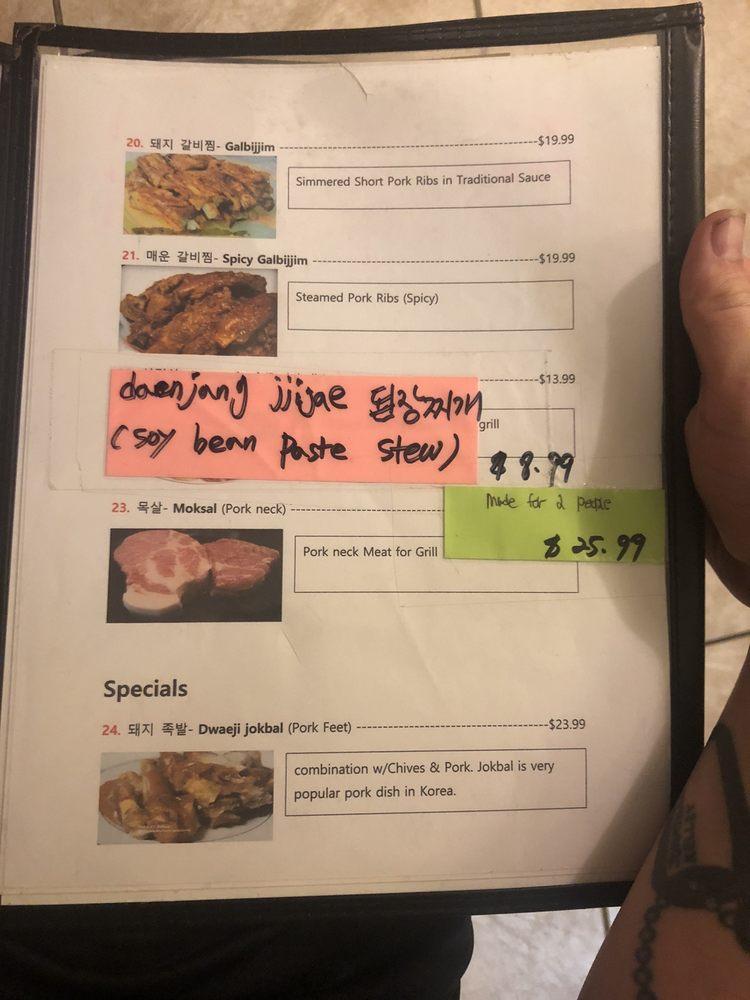 20. 돼지 갈비찜- Galbijjim ---------------$19.99
Simmered Short Pork Ribs in Traditional Sauce
21. 매운 갈비찜- Spicy Galbijjim ---------------$19.99
Steamed Pork Ribs (Spicy)
---------------$13.99
daenjang jjijae 됨장찌개
grill
(soy bean paste stew)
$ 8.99
23. 목살- Moksal (Pork neck) ---------------
Made for 2 people
Pork neck Meat for Grill
$ 25.99
Specials
24. 돼지 족발- Dwaeji jokbal (Pork Feet) ---------------$23.99
combination w/Chives & Pork. Jokbal is very
popular pork dish in Korea.